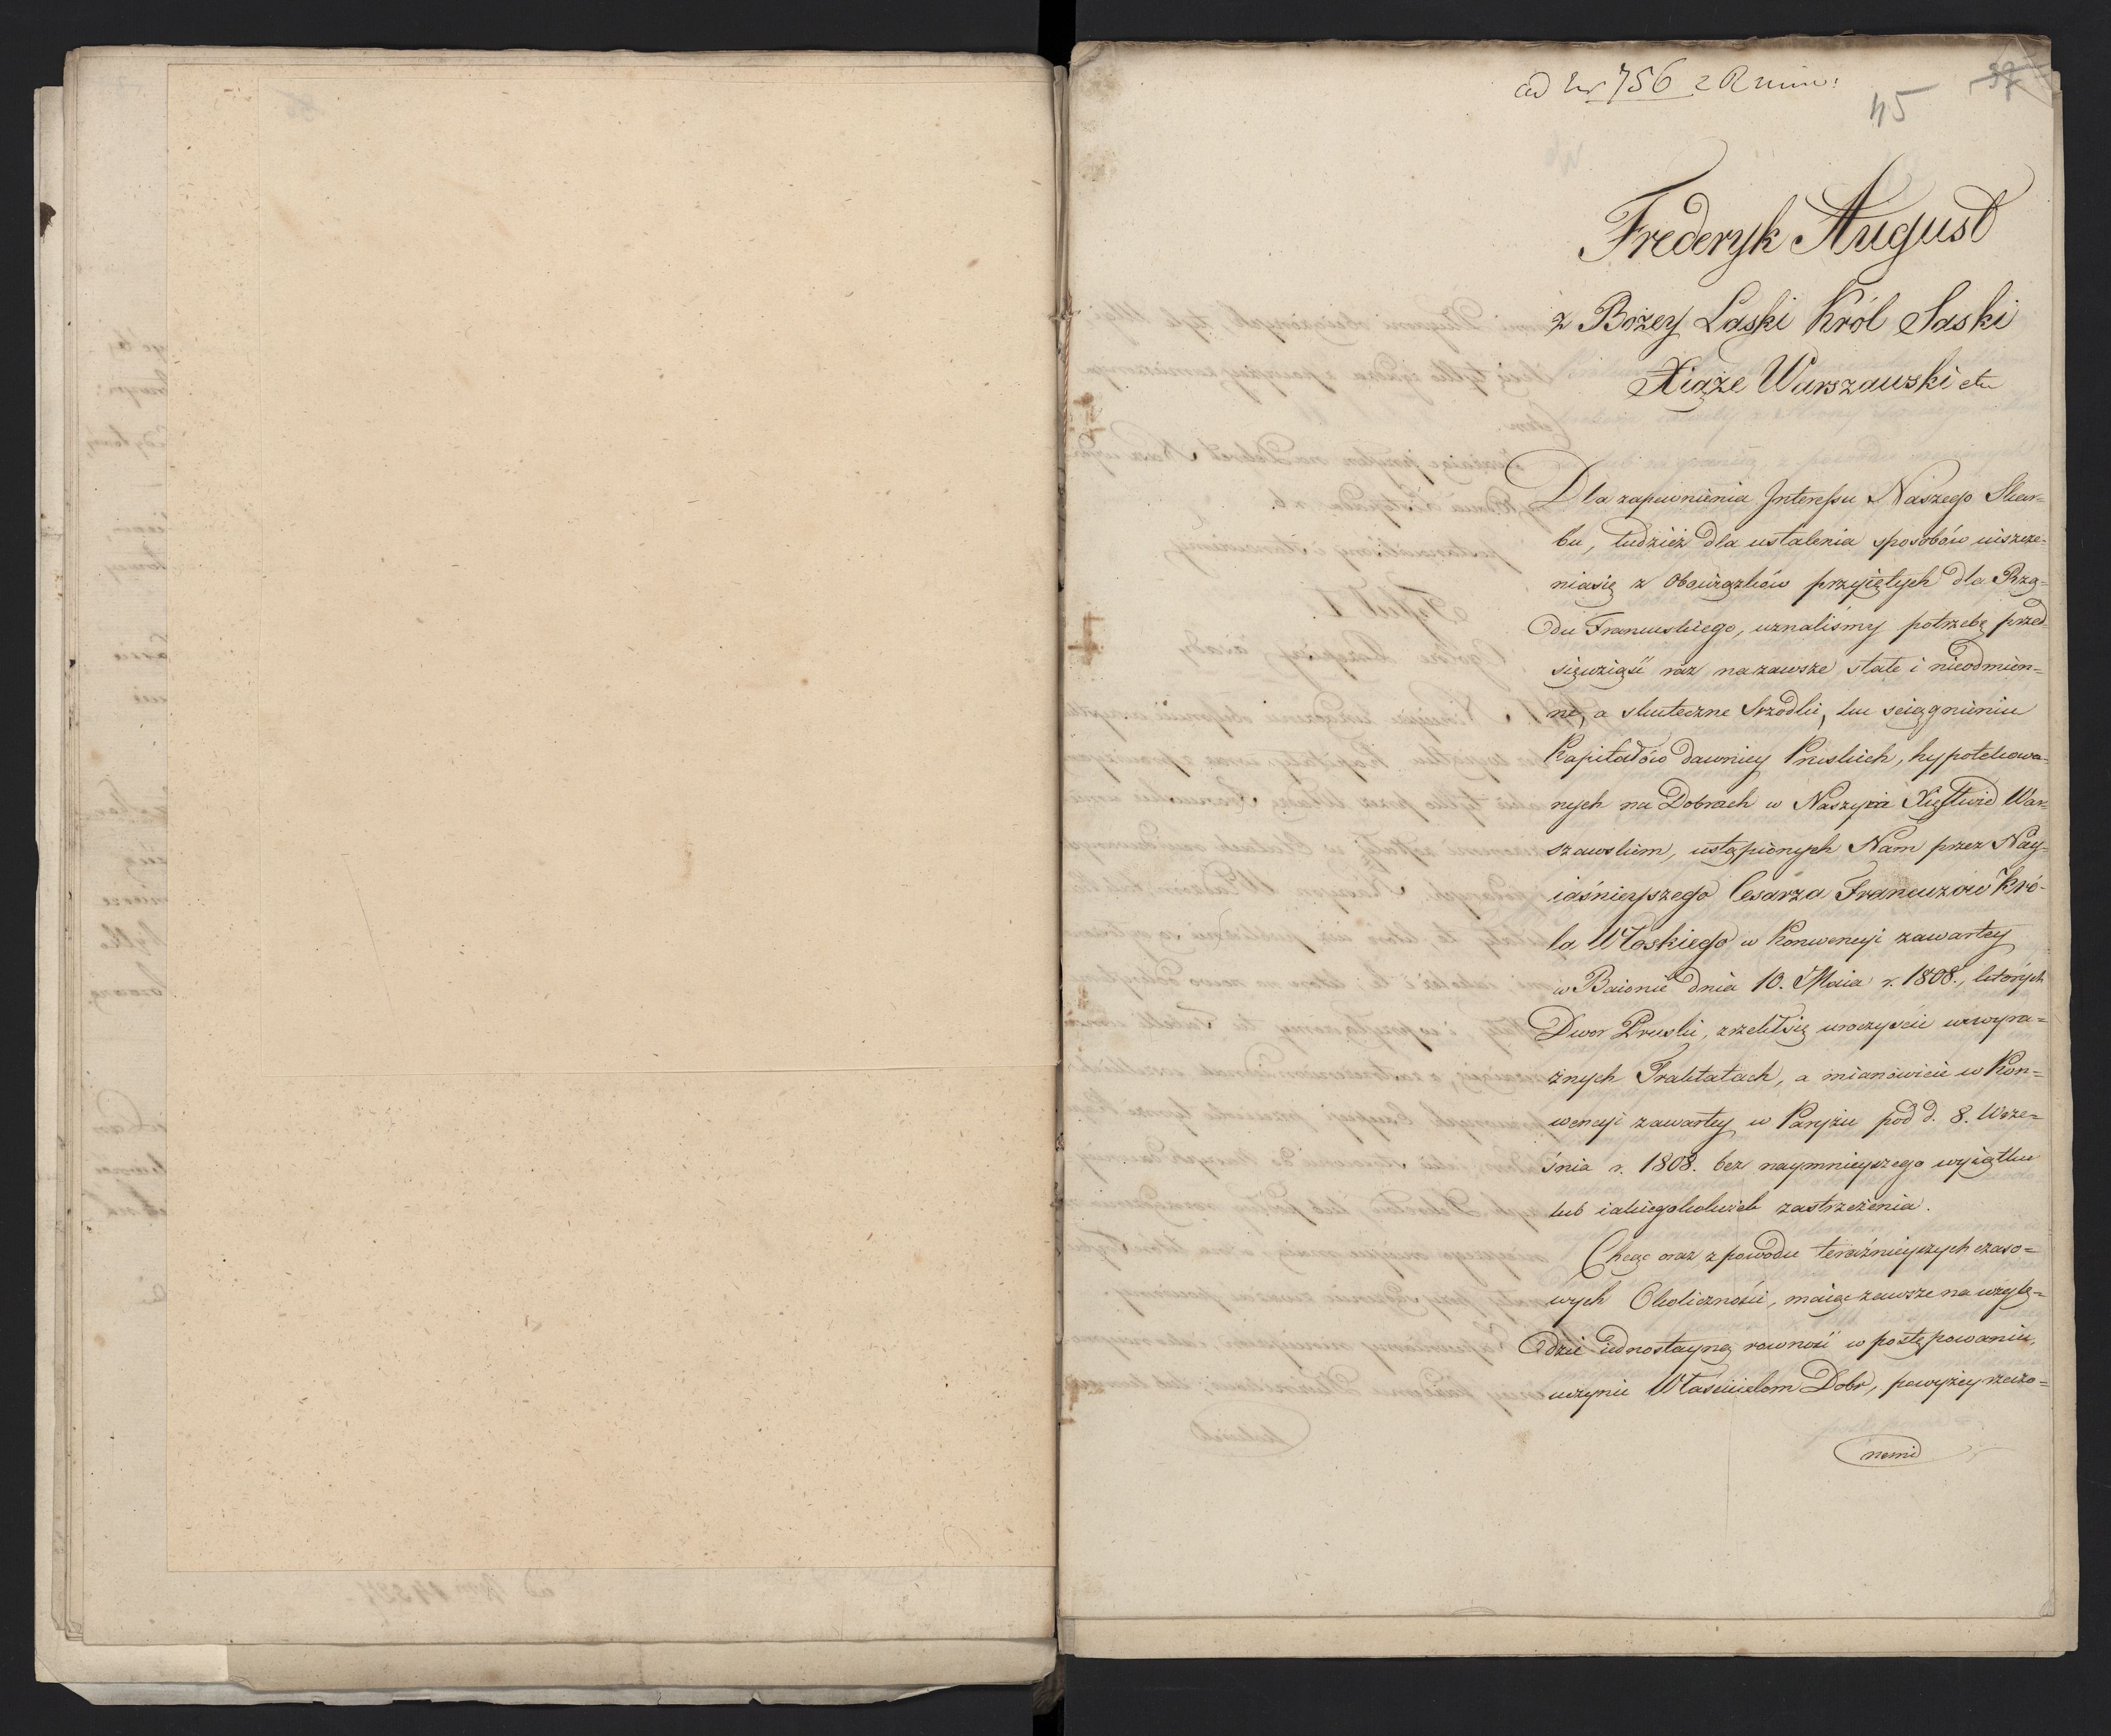 ad Nr 756
45
37
Frederyk August
z Bożey Łaski Król Saski
Xiąże Warszawski etc
Dla zapewnienia Interessu Naszego Skar=
bu, tudzież dla ustalenia sposobów uiszcze=
niasię z Obowiązków przyiętych dla Rzą=
du Francuskiego, uznaliśmy potrzebę przed=
sięwziąść raz nazawsze stałe i nieodmien=
ne, a skuteczne Srzodki, ku sciągnieniu
Kapitałów dawniey Pruskich, hypotekowa=
nych na Dobrach w Naszym Xięstwie War=
szawskiem, ustąpionych Nam przez Nay=
iaśnieyszego Cesarza Francuzów Kró=
la Włoskiego w Konwencyi zawartey
w Baionie dnia 10. Maia r. 1808., których
Dwor Pruski, zrzekłsię uroczyście wwyra=
źnych Traktatach, a mianowicie w Kon=
wencyi zawartey w Paryżu pod d. 8. Wrze=
śnia r. 1808. bez naymnieyszego wyiątku
lub iakiegokolwiek zastrzeżenia.
Chcąc oraz z powodu teraźnieyszych czaso=
wych Okoliczności, maiąc zawsze na wzglę=
dzie iednostayną rowność w postępowaniu,
uczynić Właścicielom Dobr, powyżey rzeczo=
nemi